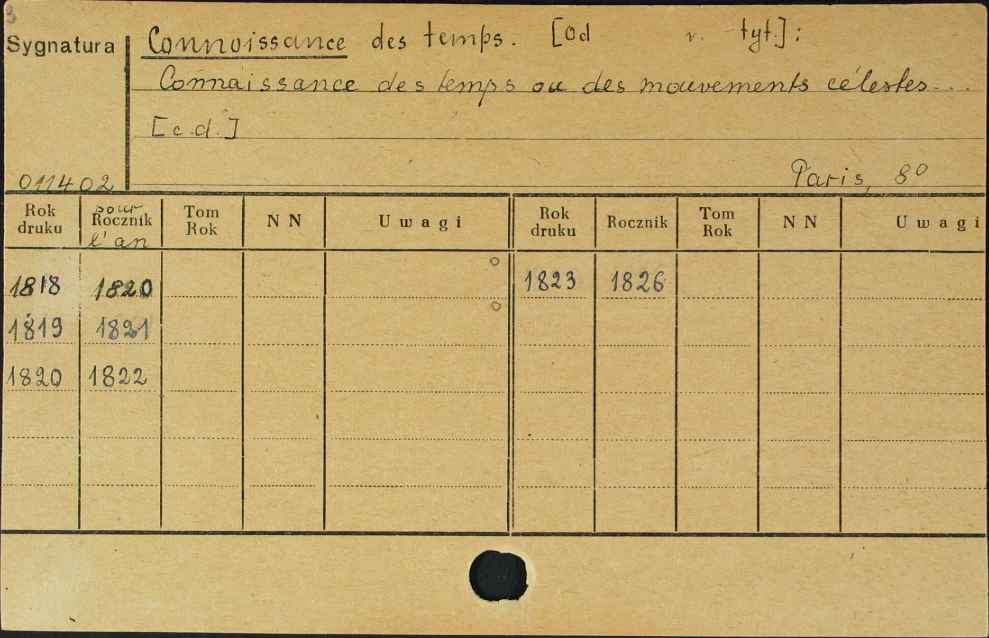 3
Sygnatura
Connoissance des temps. [Od v. tyt.]:
Connaissance des temps ou des mouvements célestes...
[c.d.]
011402
Paris, 8º
Rok druku | pour Rocznik l'an | Tom Rok | NN | Uwagi | Rok druku | Rocznik | Tom Rok | NN | Uwagi
1818 1820 1823 1826
1819 1821
1820 1822